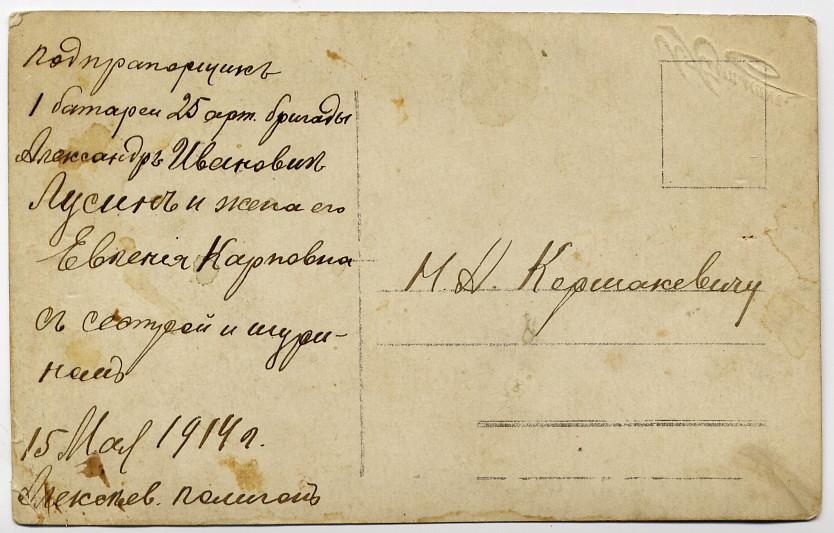 подпрапорщикъ
1 батареи 25 арт. бригады
Александръ Ивановичъ
Лусикъ и жена его
Евгенія Карповна
съ сестрой и шури-
номъ
15 Мая 1914 г.
Алексѣев. полигонъ
М. Д. Коршакевичу